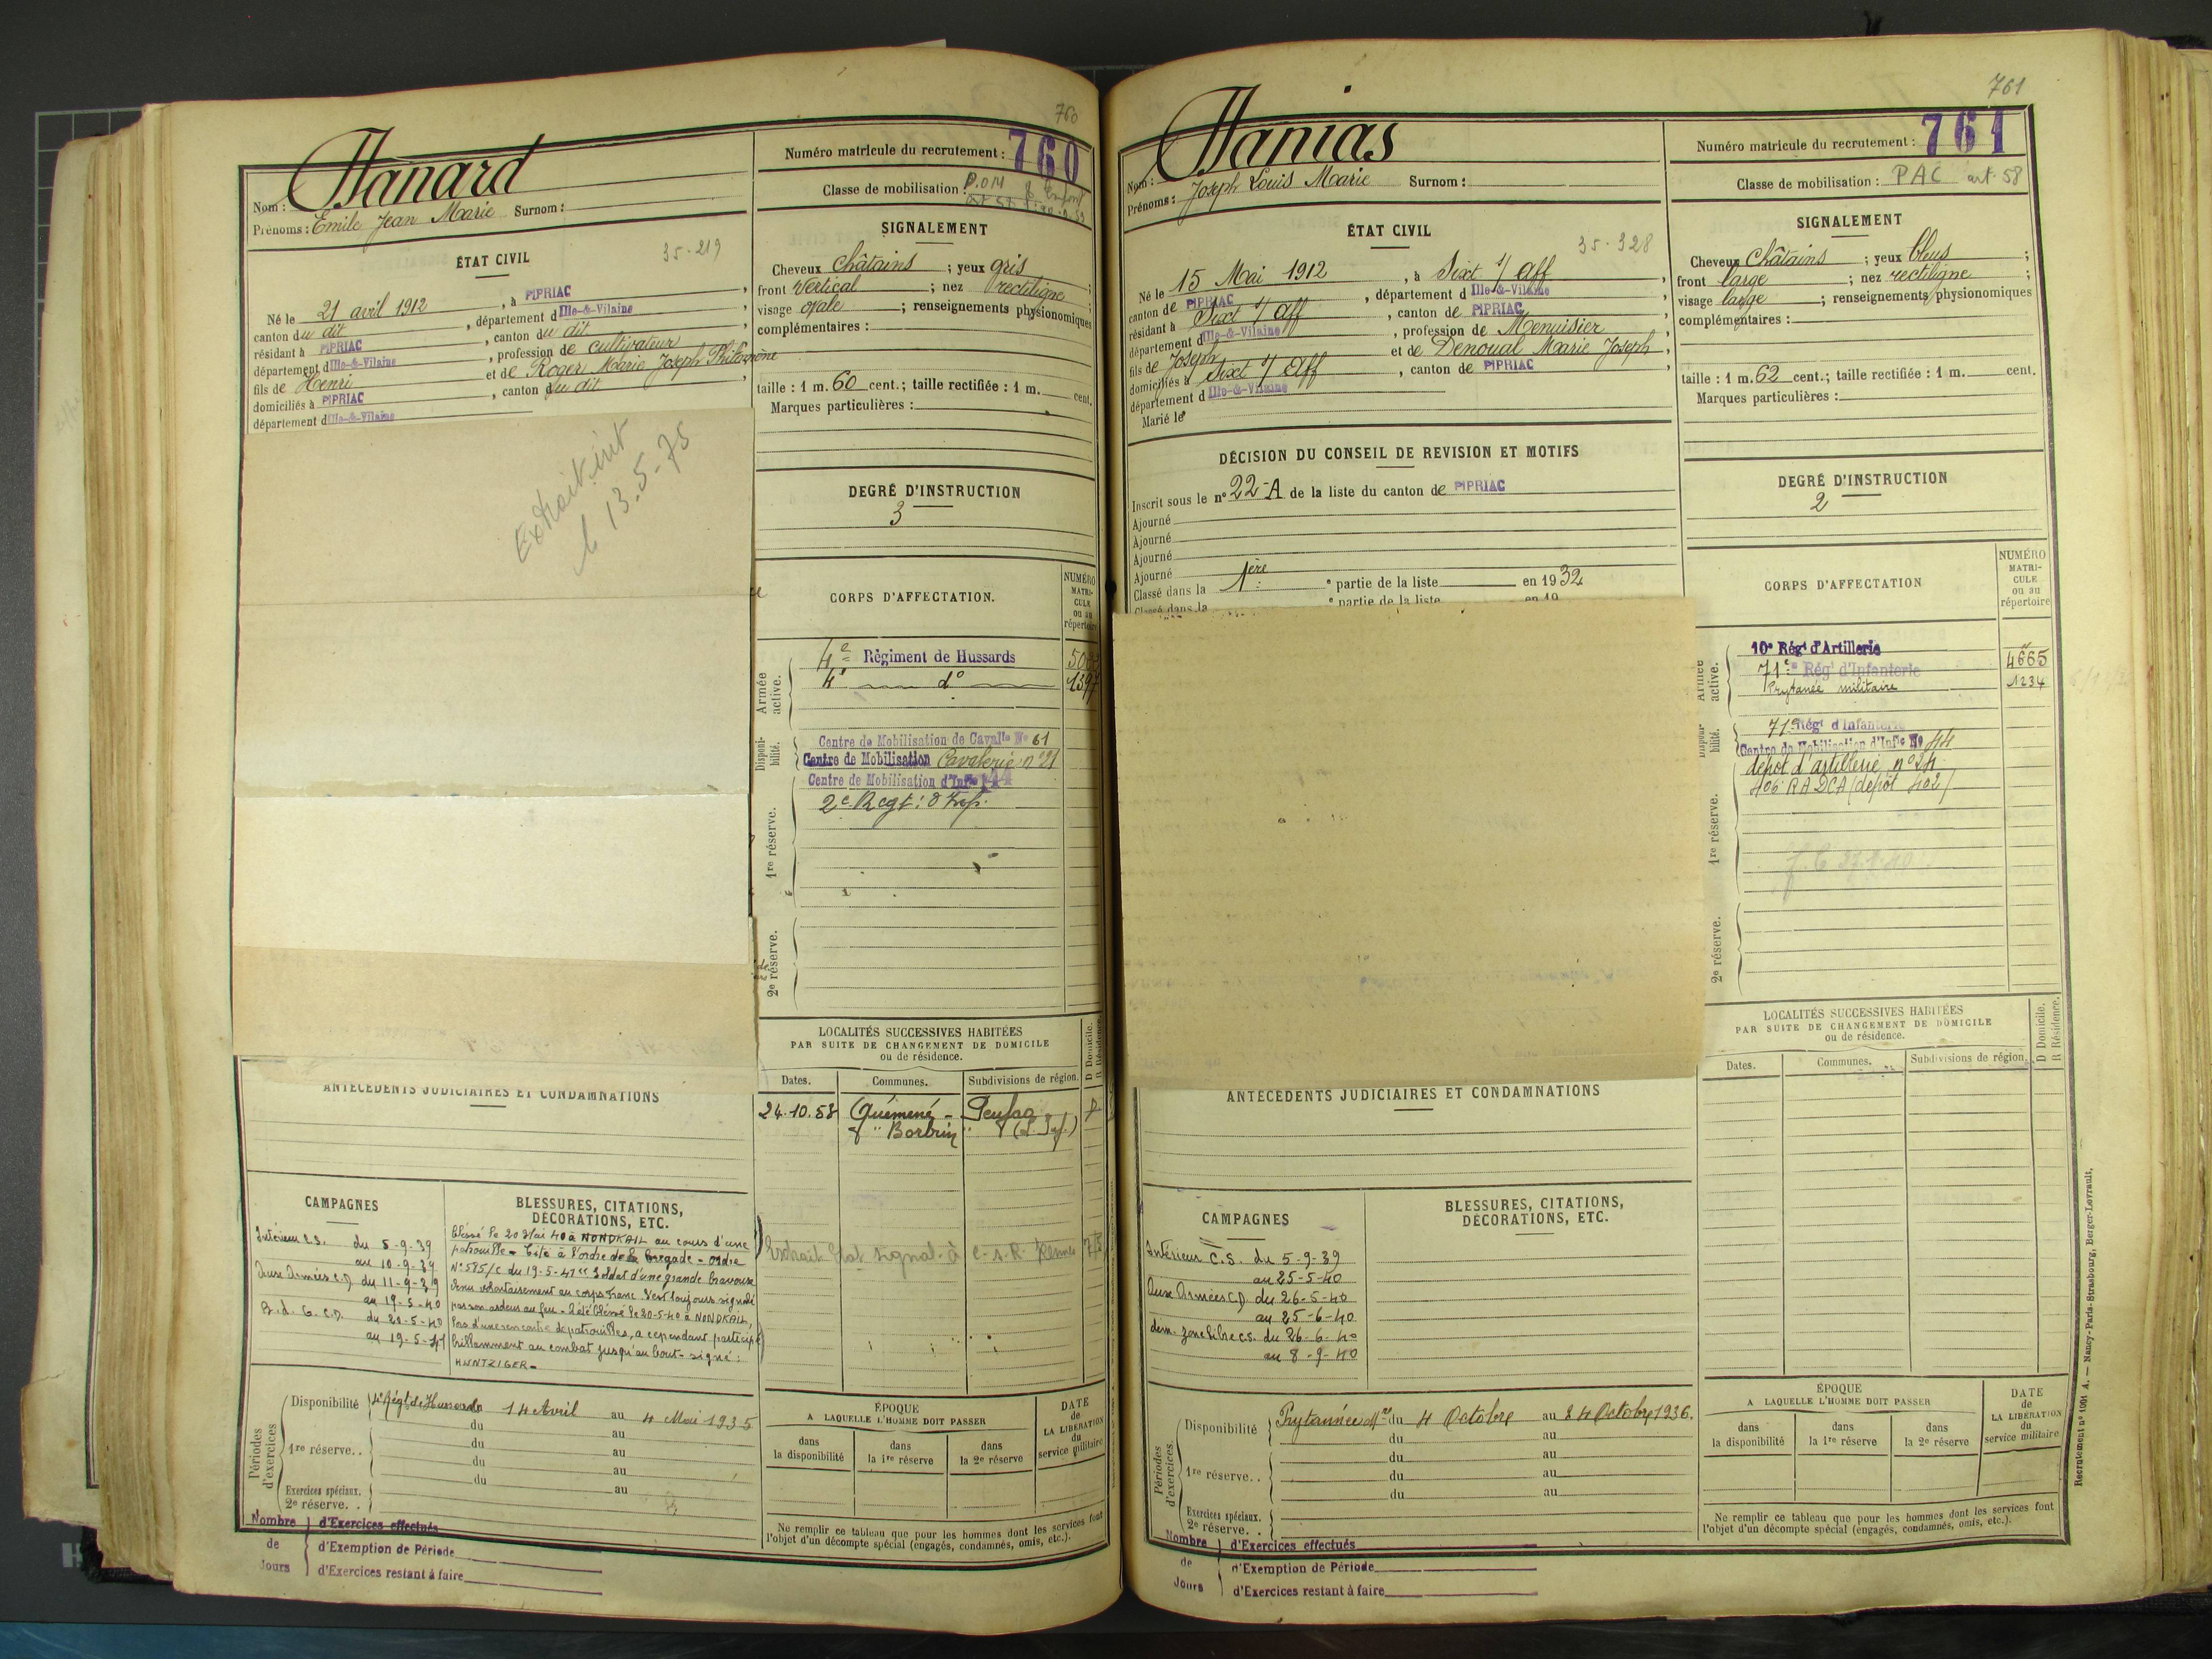 760
Hanard
Nom :
Prénoms : Emile Jean Marie Surnom :
Numéro matricule du recrutement : 760
Classe de mobilisation :
ÉTAT CIVIL
35-219
Né le 21 avril 1912, à PIPRIAC
canton du dit, département d Ille-&-Vilaine
résidant à PIPRIAC, canton du dit
département d Ille-&-Vilaine, profession de cultivateur
fils de Henri et de Roger Marie Joseph Philomène
domiciliés à PIPRIAC, canton du dit
département d Ille-&-Vilaine
Extrait
le 13.5-75
SIGNALEMENT
Cheveux châtains ; yeux gris ;
front vertical ; nez rectiligne ;
visage ovale ; renseignements physionomiques
complémentaires :
taille : 1 m. 60 cent.; taille rectifiée : 1 m. cent.
Marques particulières :
DEGRÉ D'INSTRUCTION
3
CORPS D'AFFECTATION.
NUMÉRO
MATRI-
CULE
ou au
répertoire
Armée
active.
4e Régiment de Hussards
4e d°
Disponi-
bilité.
Centre de Mobilisation de Cavalie No 61
Centre de Mobilisation Cavalerie n°21
Centre de Mobilisation d'Infie 44
1re réserve.
2e Regt:
2e réserve.
LOCALITÉS SUCCESSIVES HABITÉES
PAR SUITE DE CHANGEMENT DE DOMICILE
ou de résidence.
D Domicile.
R Résidence.
Dates.
Communes.
Subdivisions de région.
24.10.53 Quémené - Penfao
ANTÉCÉDENTS JUDICIAIRES ET CONDAMNATIONS
CAMPAGNES
Intérieur C.S. du 5-9-39
au 10-9-39
Aux Armées C.D. du 11-9-39
au 19-5-40
P.d.G. C.D. du 20-5-40
au 19-5-41
BLESSURES, CITATIONS,
DÉCORATIONS, ETC.
blessé le 20 Mai 40 à NONDKAIL au cours d'une
patrouille - Cité à l'ordre de la Brigade - ordre
N° 585/C du 19-5-41 "Soldat d'une grande bravoure
venu volontairement au corps Franc s'est toujours signalé
par son ardeur au feu - a été blessé le 20-5-40 à NONDKAIL,
lors d'une rencontre de patrouilles, a cependant participé
brillamment au combat jusqu'au bout - signé :
HUNTZIGER -
Périodes
d'exercices
Disponibilité 4e Régt de Hussards 14 Avril au 4 Mai 1935
du au
1re réserve. . du au
du au
du au
Exercices spéciaux.
2e réserve. .
Nombre
de
Jours
d'Exercices effectués
d'Exemption de Période
d'Exercices restant à faire
ÉPOQUE
A LAQUELLE L'HOMME DOIT PASSER
dans
la disponibilité
dans
la 1re réserve
dans
la 2e réserve
DATE
de
LA LIBÉRATION
du
service militaire
Ne remplir ce tableau que pour les hommes dont les services font
l'objet d'un décompte spécial (engagés, condamnés, omis, etc.).
761
Hanias
Nom :
Prénoms : Joseph Louis Marie Surnom :
Numéro matricule du recrutement : 761
Classe de mobilisation : PAC art. 58
ÉTAT CIVIL
35-328
Né le 15 Mai 1912, à Sixt s/ Aff
canton de PIPRIAC, département d Ille-&-Vilaine
résidant à Sixt s/ Aff, canton de PIPRIAC
département d Ille-&-Vilaine, profession de Menuisier
fils de Joseph et de Denoual Marie Joseph
domiciliés à Sixt s/ Aff, canton de PIPRIAC
département d Ille-&-Vilaine
Marié le
DÉCISION DU CONSEIL DE REVISION ET MOTIFS
Inscrit sous le n° 22-A de la liste du canton de PIPRIAC
Ajourné
Ajourné
Ajourné
Ajourné
Classé dans la 1ère e partie de la liste en 1932
Classé dans la e partie de la liste en 19
SIGNALEMENT
Cheveux Châtains ; yeux bleus ;
front large ; nez rectiligne ;
visage large ; renseignements physionomiques
complémentaires :
taille : 1 m. 62 cent.; taille rectifiée : 1 m. cent.
Marques particulières :
DEGRÉ D'INSTRUCTION
2
CORPS D'AFFECTATION
NUMÉRO
MATRI-
CULE
ou au
répertoire
Armée
active.
10e Régt d'Artillerie
71e Régt d'Infanterie 4665
Prytanée militaire 1234
Disponi-
bilité.
71e Régt d'Infanterie
Centre de Mobilisation d'Infie No 44
dépot d'artillerie n°24
406 RADCA (dépôt 402)
1re réserve.
2e réserve.
LOCALITÉS SUCCESSIVES HABITÉES
PAR SUITE DE CHANGEMENT DE DOMICILE
ou de résidence.
D Domicile.
R Résidence.
Dates.
Communes.
Subdivisions de région.
ANTÉCÉDENTS JUDICIAIRES ET CONDAMNATIONS
CAMPAGNES
Intérieur C.S. du 5-9-39
au 25-5-40
Aux Armées C.D. du 26-5-40
au 25-6-40
dem. zone libre c.s. du 26-6-40
au 8-9-40
BLESSURES, CITATIONS,
DÉCORATIONS, ETC.
Périodes
d'exercices.
Disponibilité Prytannée Mre du 4 Octobre au 24 Octobre 1936.
du au
1re réserve. . du au
du au
du au
Exercices spéciaux.
2e réserve. .
Nombre
de
Jours
d'Exercices effectués
d'Exemption de Période
d'Exercices restant à faire
ÉPOQUE
A LAQUELLE L'HOMME DOIT PASSER
dans
la disponibilité
dans
la 1re réserve
dans
la 2e réserve
DATE
de
LA LIBÉRATION
du
service militaire
Ne remplir ce tableau que pour les hommes dont les services font
l'objet d'un décompte spécial (engagés, condamnés, omis, etc.).
Recrutement n° 1051 A. — Nancy-Paris-Strasbourg, Berger-Levrault,